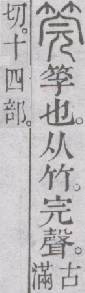 筦筟也。从竹。完聲。古滿
切。十四部。